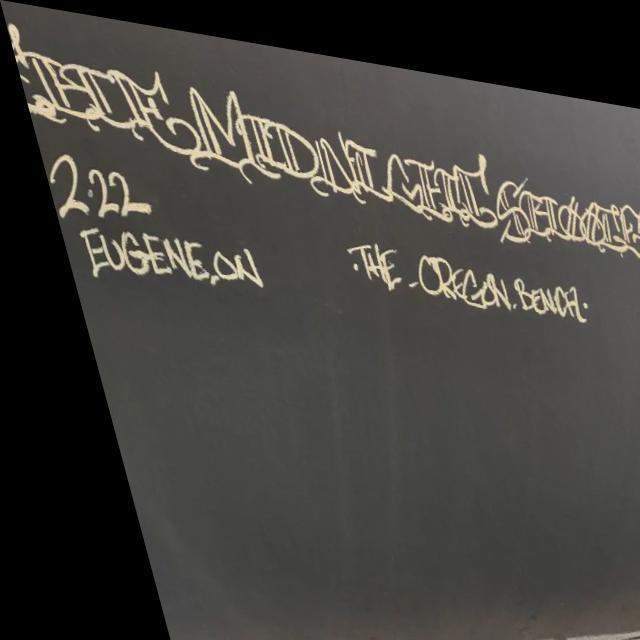 THE MIDNIGHT
2.22
EUGENE, ON ·THE - OREGON BENCH·